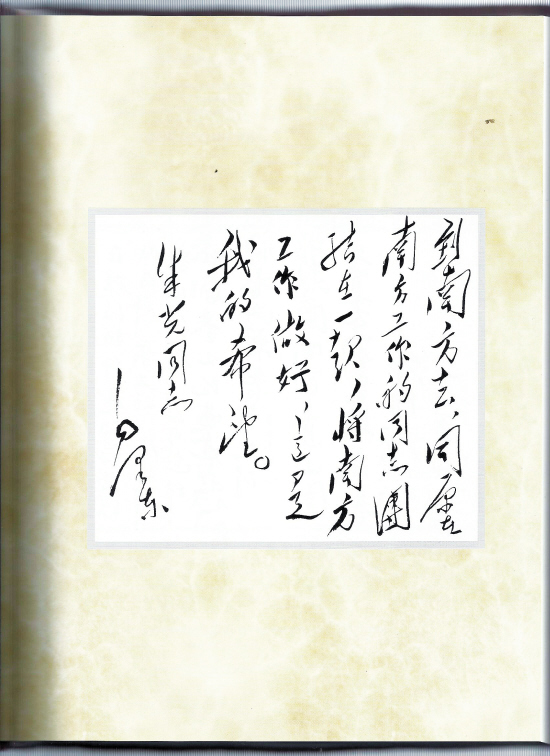 到南方去，同原在
南方工作的同志团
结在一起，将南方
工作做好，这是
我的希望。
朱光同志
毛泽东